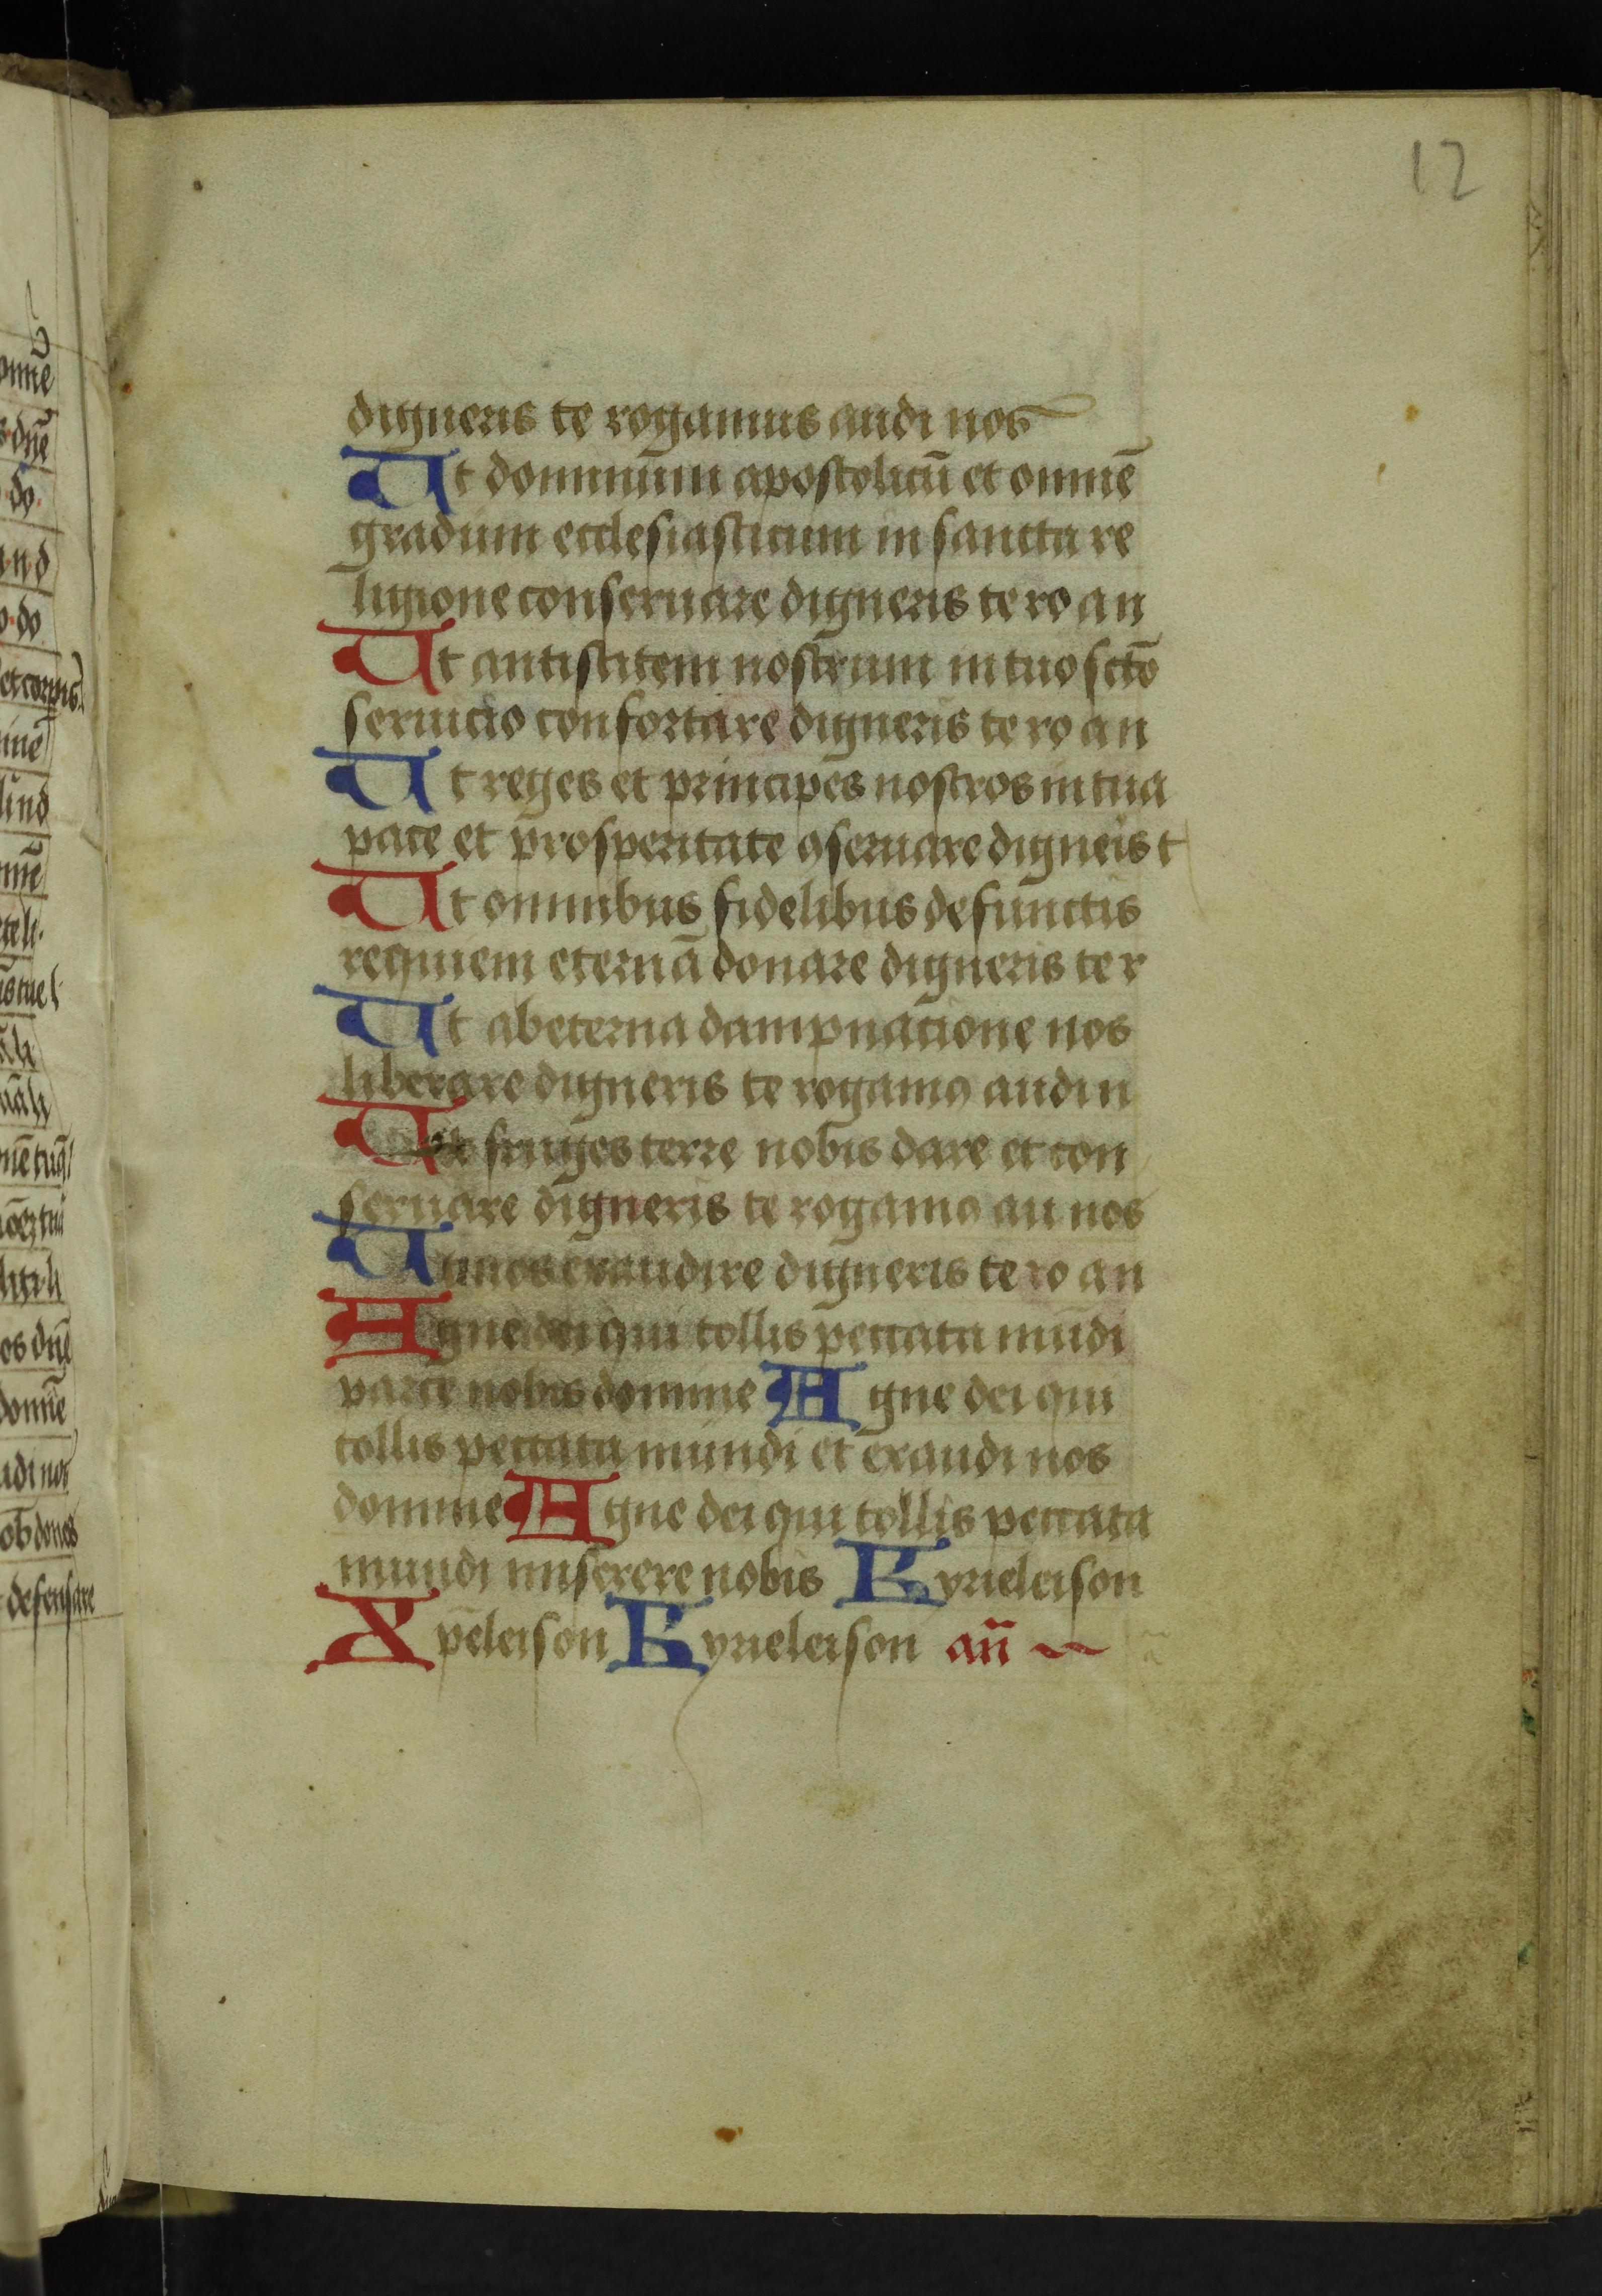 12
digneris te rogamus audi nos
Ut dominium apostolicū et omnē
gradium ecclesiasticum in sancta re
ligione conseruare digneris te ro a n
Ut antistitem nostrum in tuo sctō
seruicio confortare digneris te ro a n
Ut reges et principes nostros in tua
pace et prosperitate ꝯseruare digneis t
Ut omnibus fidelibus defunctis
requiem eternā donare digneris te r
Ut ab eterna dampnatione nos
liberare digneris te rogamꝰ audi n
Ut fruges terre nobis dare et con
seruare digneris te rogamꝰ au nos
Ut nos exaudire digneris te ro a n
Agne dei qui tollis peccata mundi
parce nobis domine Agne dei qui
tollis peccata mundi et exaudi nos
domine Agne dei qui tollis peccata
mundi miserere nobis Kyrieleison
Xpēleison Kyrieleison an̄